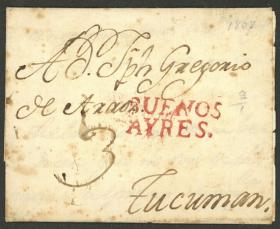 1807
A D. Jph Gregorio
de Araoz
BUENOS
AYRES.
3
Tucuman.